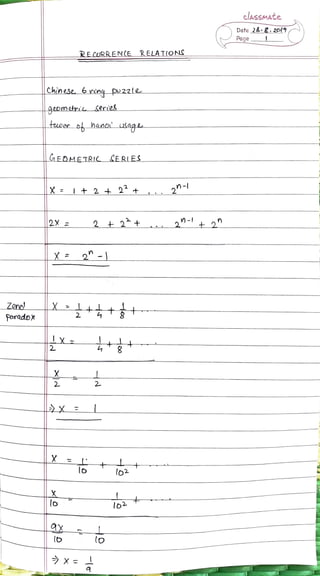 classmate
Date 28.8.2019
Page 1
RECURRENCE RELATIONS
Chinese 6 ring puzzle
geometric series
tower of hanoi usage
GEOMETRIC SERIES
X = 1 + 2 + 2² + ... 2ⁿ⁻¹
2X = 2 + 2² + ... 2ⁿ⁻¹ + 2ⁿ
X = 2ⁿ - 1
Zeno'
paradox
X = 1/2 + 1/4 + 1/8 + ...
1/2 X = 1/4 + 1/8 + ...
X/2 = 1/2
⇒ X = 1
X = 1/10 + 1/10² + ....
X/10 = 1/10² + ....
9X/10 = 1/10
⇒ X = 1/9